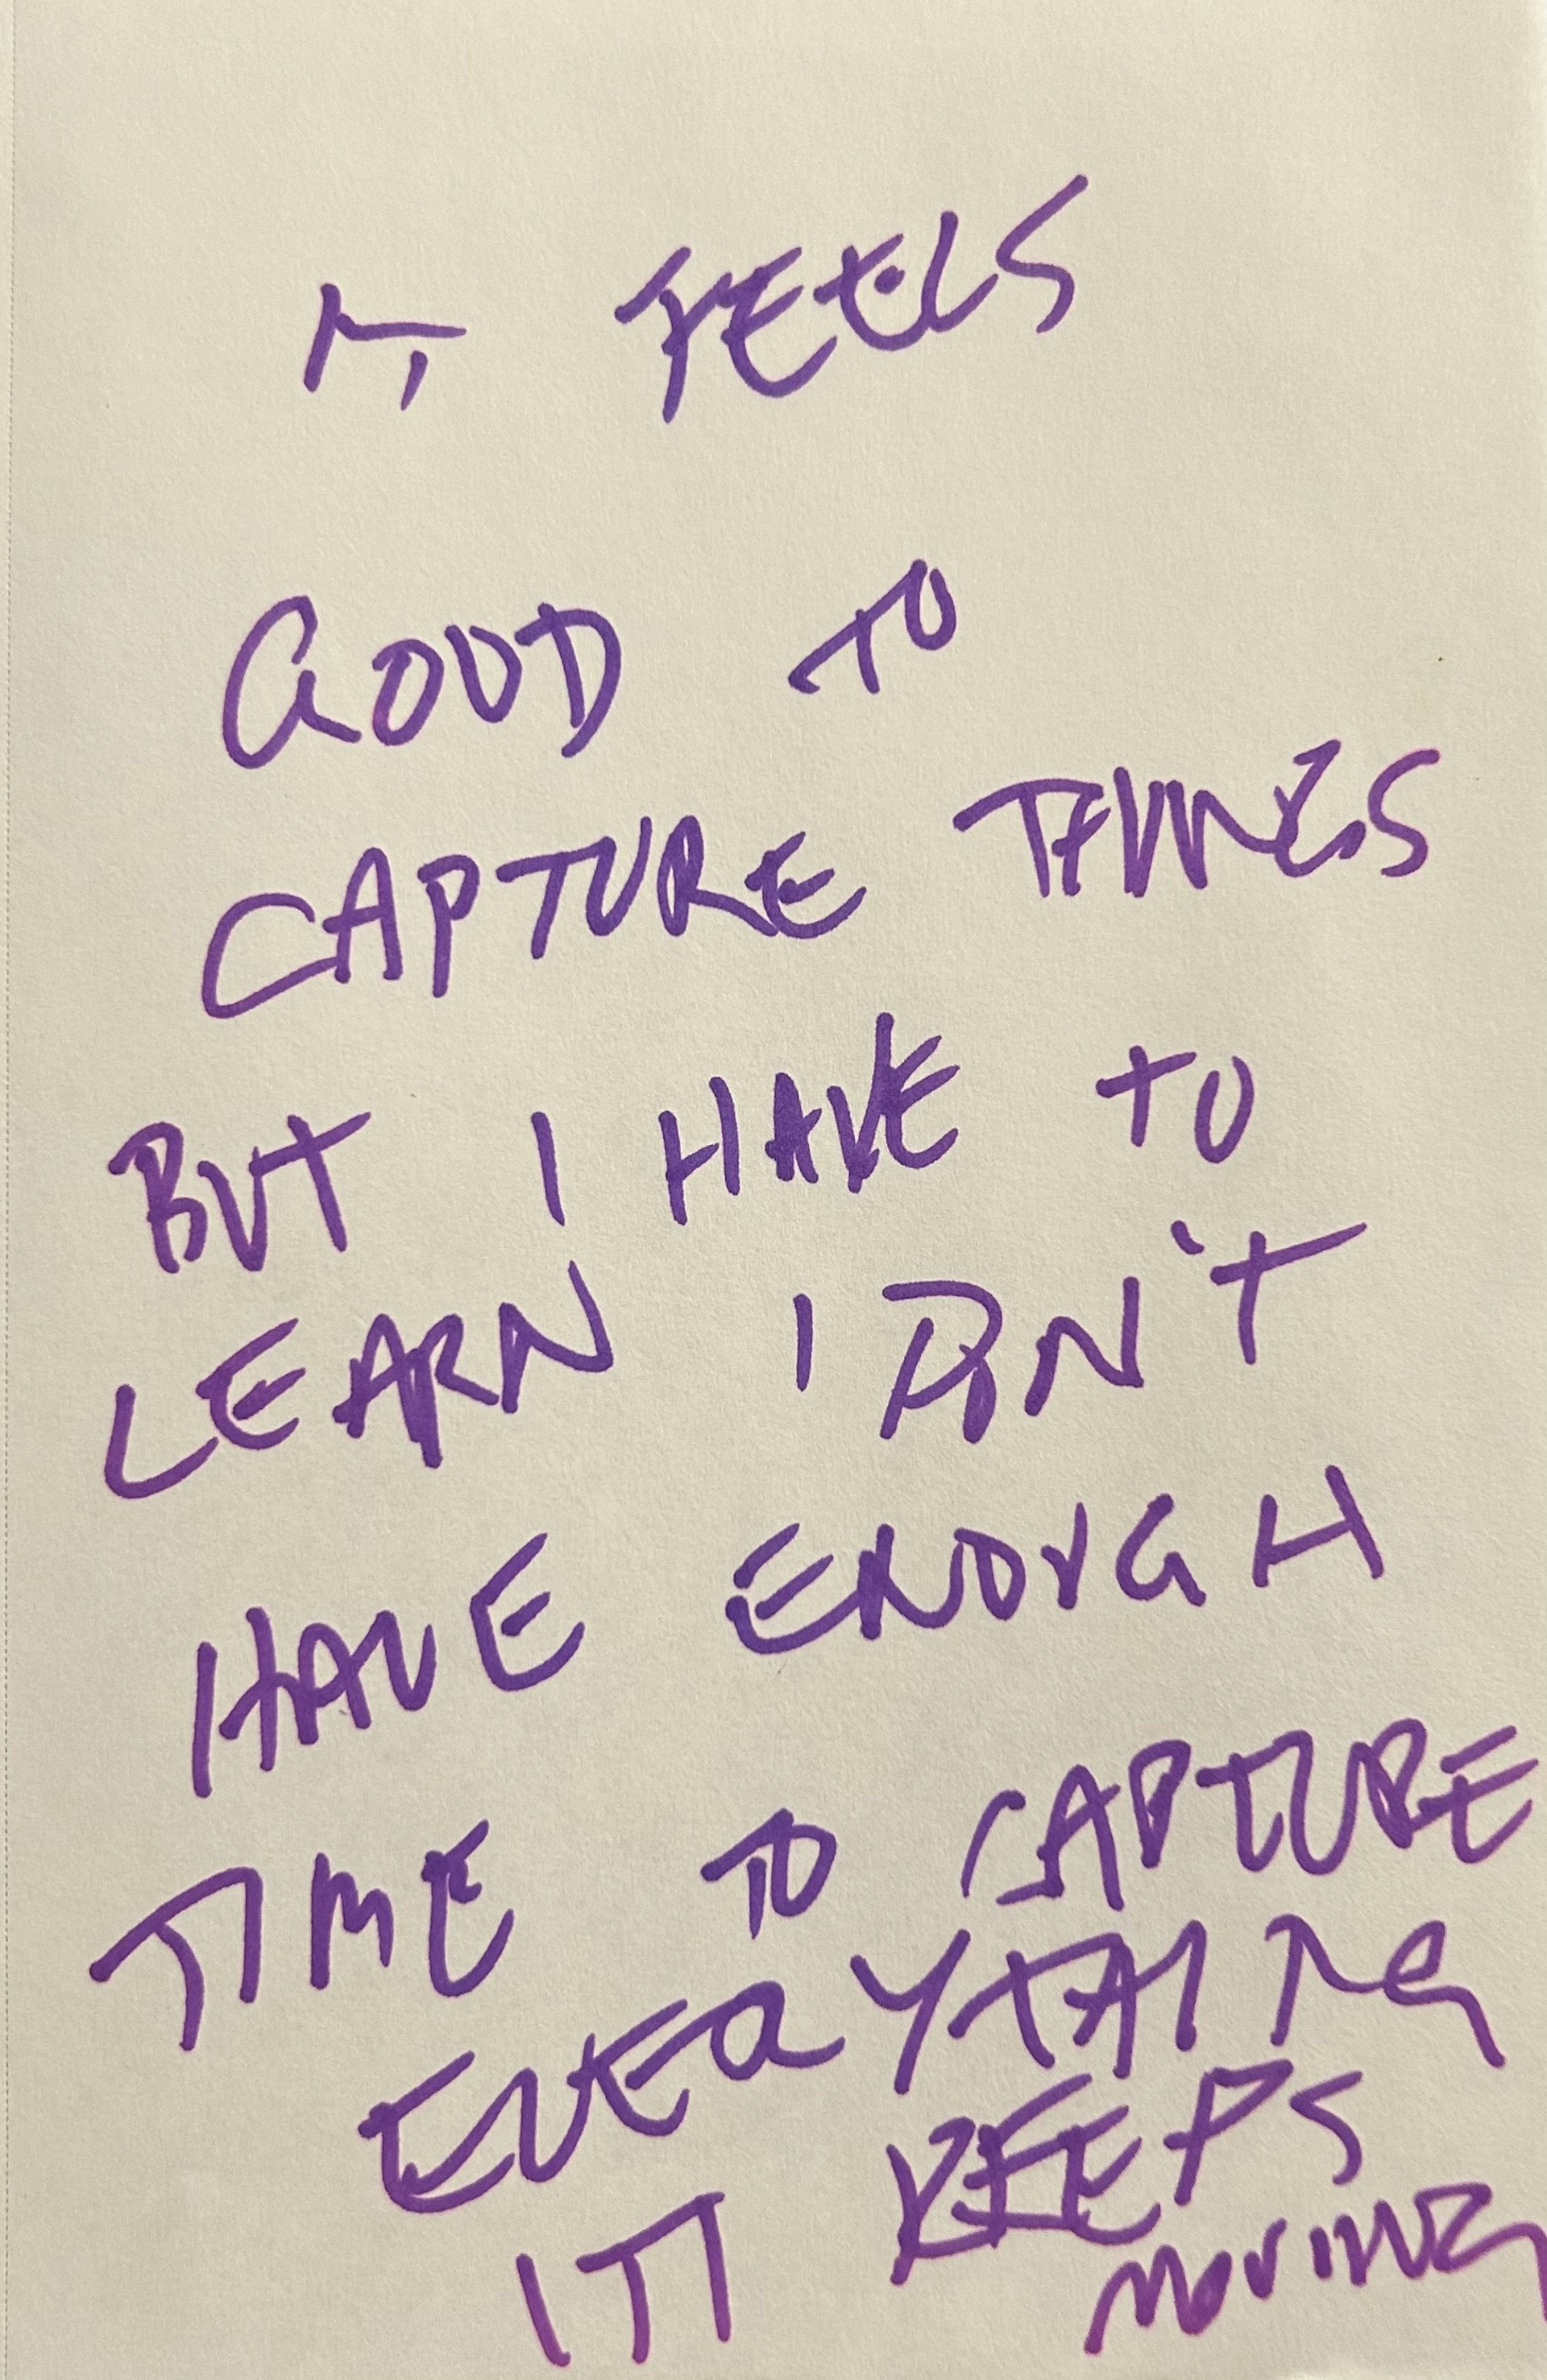 IT FEELS
GOOD TO
CAPTURE THINGS
BUT I HAVE TO
LEARN I DON'T
HAVE ENOUGH
TIME TO CAPTURE
EVERYTHING
IT KEEPS
MOVING